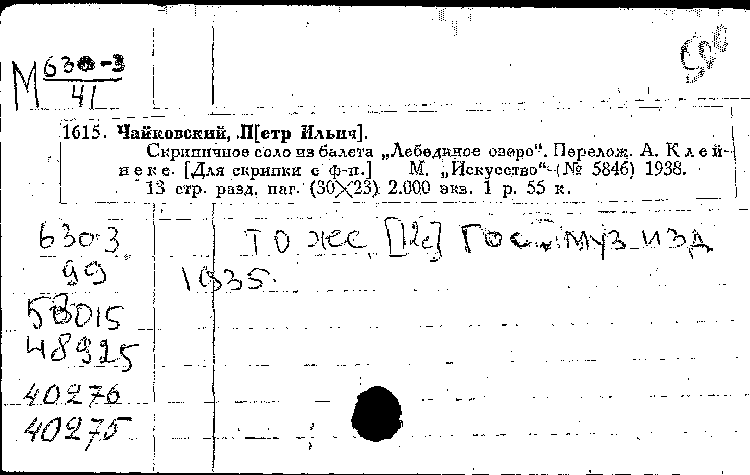 М 630-3
41
1615. Чайковский, П[етр Ильич].
Скрипичное соло из балета „Лебединое озеро“. Перелож. А. Клей-
неке. [Для скрипки с ф-п.] М. „Искусство“ (№ 5846) 1938.
13 стр. разд. паг. (30×23) 2.000 экз. 1 р. 55 к.
630-3 то же Гос. муз изд
99 1935.
53015
48925
40276
40275